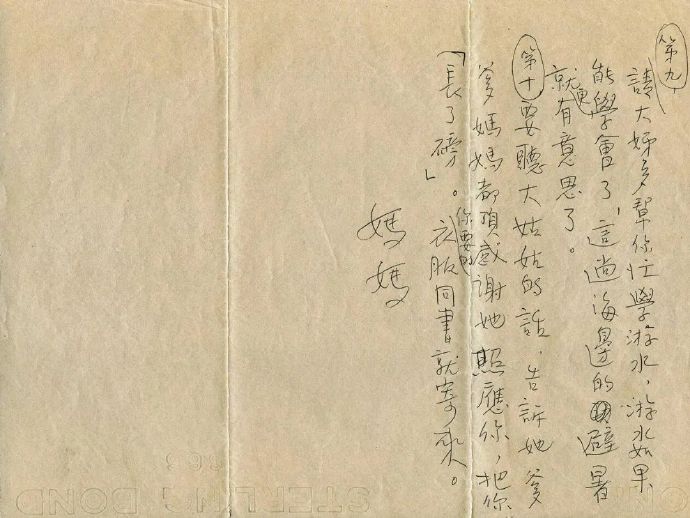 第九
請大姊多幫你忙學游水，游水如果
能學會了，這尚海邊的避暑
就更有意思了。
第十要聽大姑姑的話，告訴她爹
爹媽媽都頂感謝她照應你，把你
「長了磅」。你要的衣服同書就寄來。
媽媽
STERLING BOND